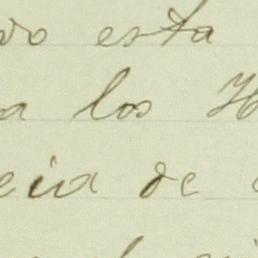 vo esta
a los H
eia de